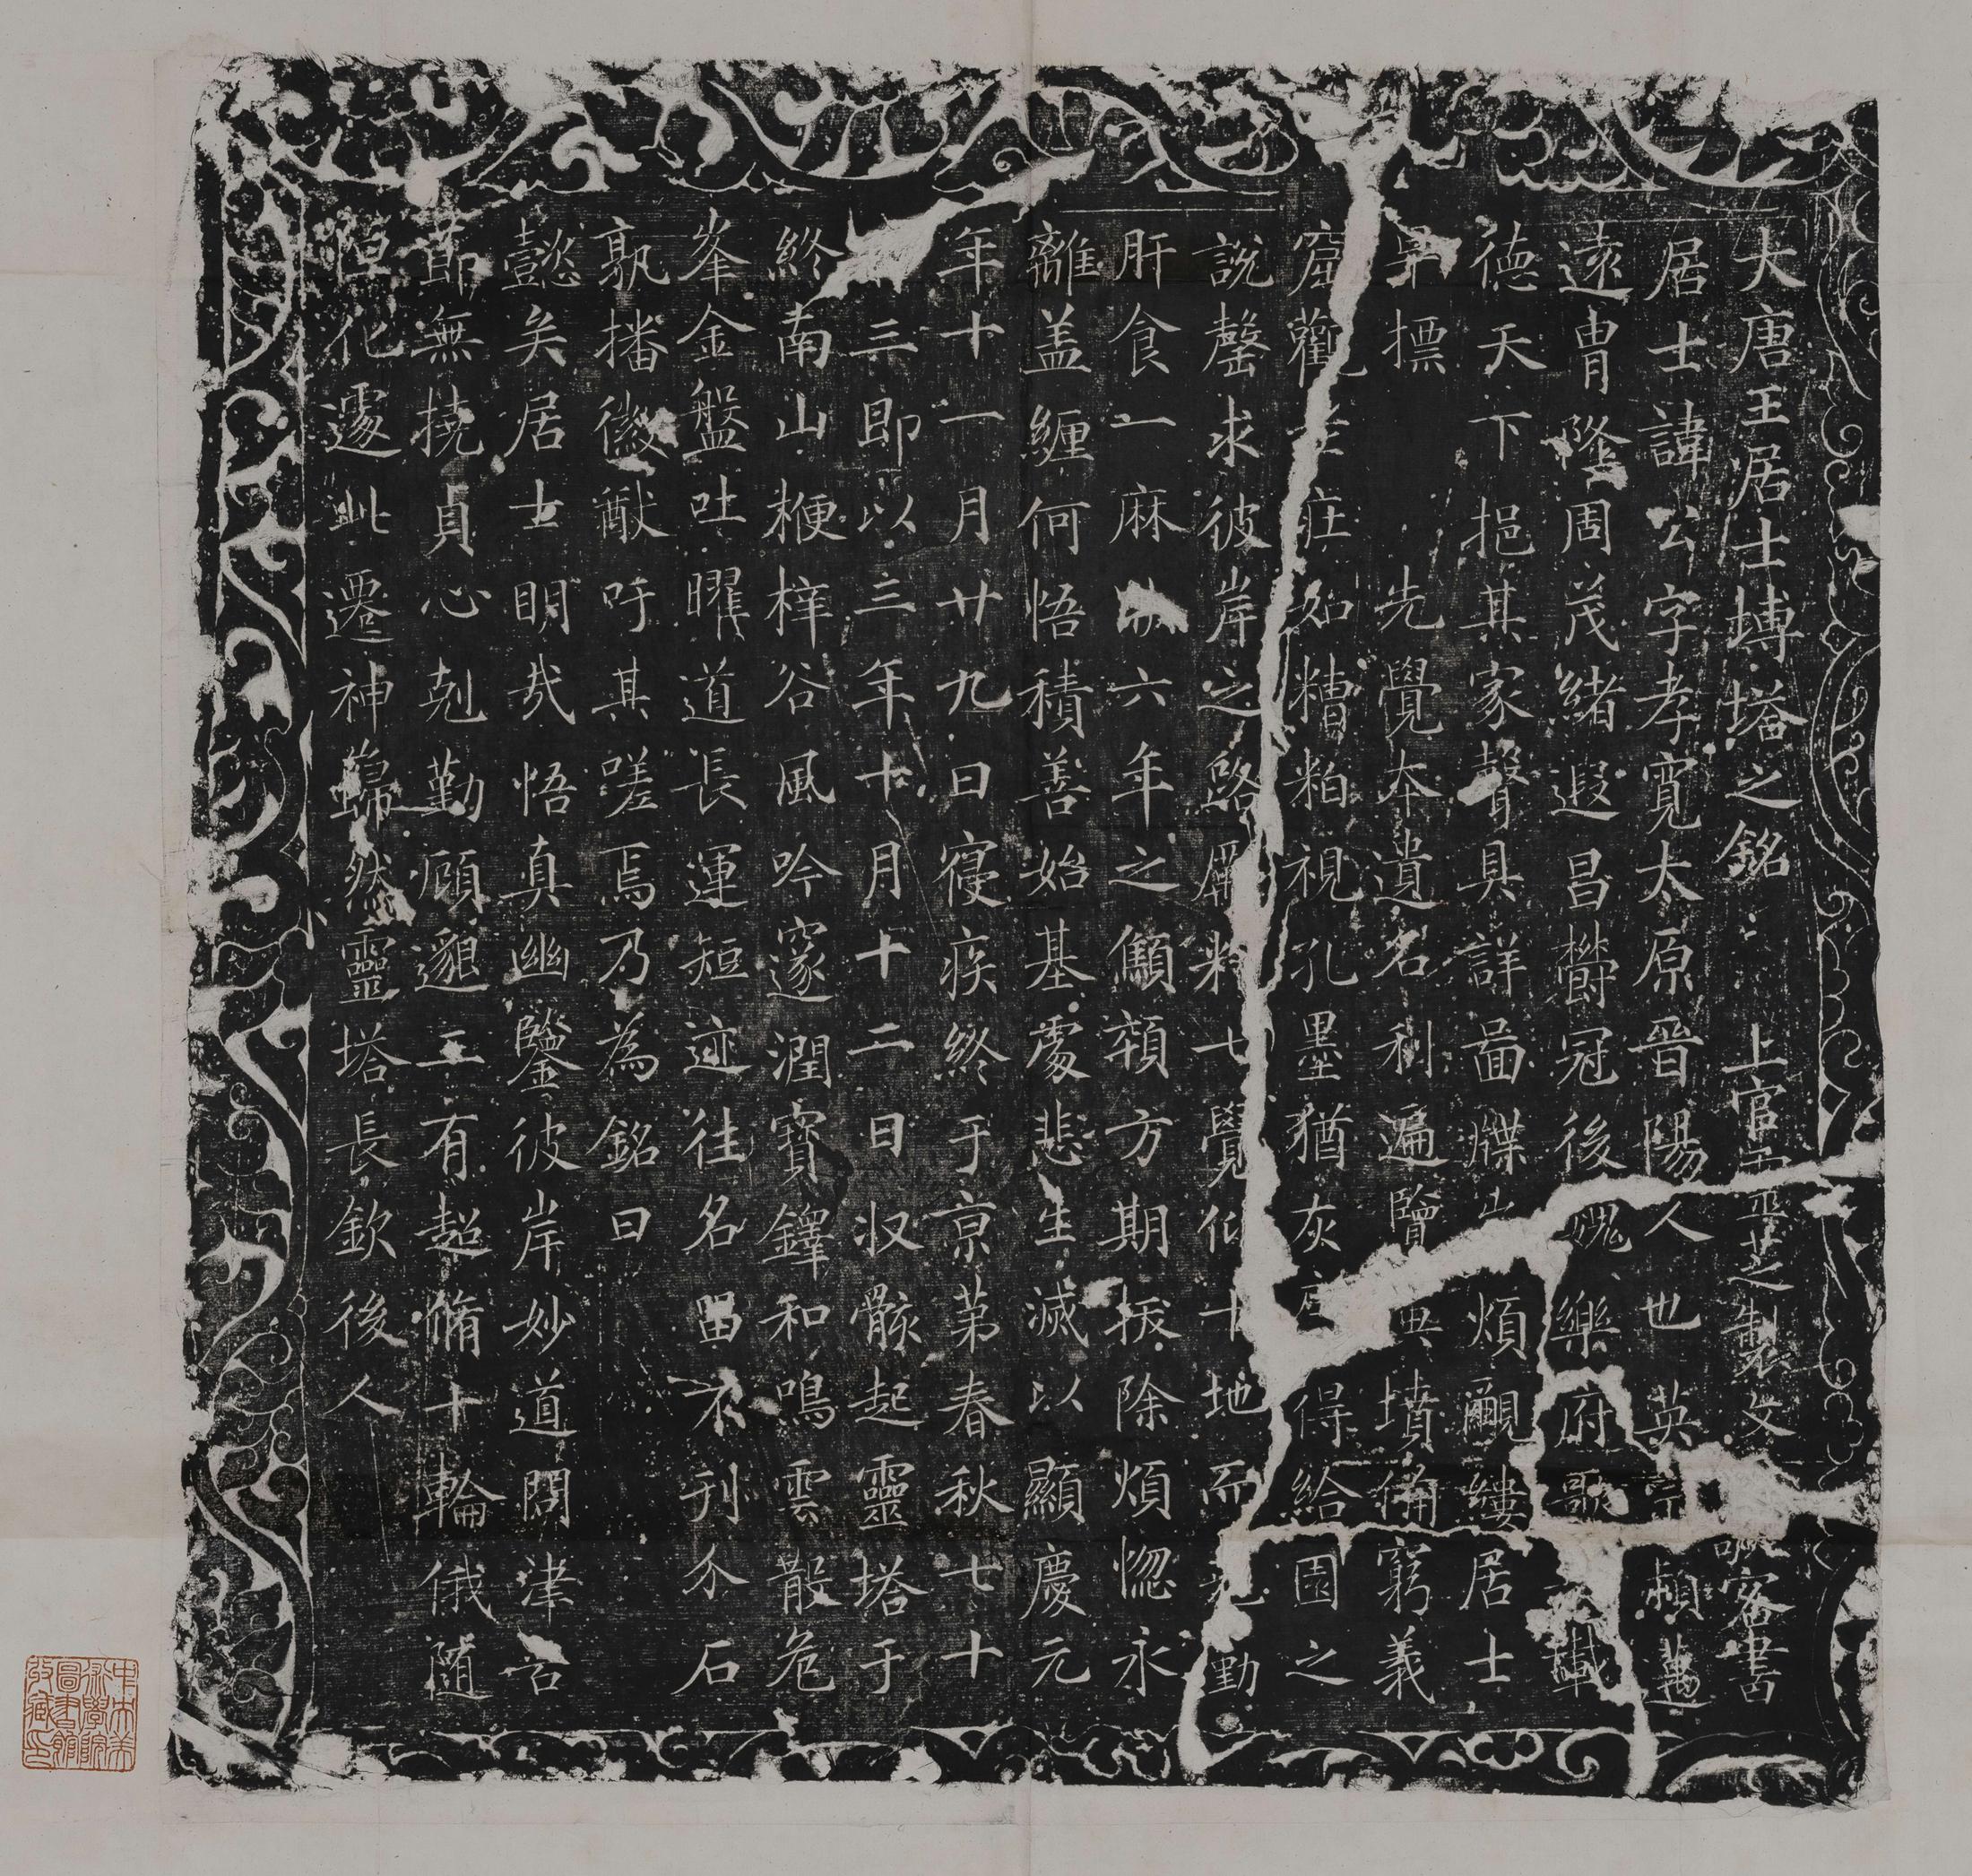 大唐王居士塼塔之銘 上官靈芝製文 敬客書
居士諱公字孝寬太原晉陽人也英宗穎邁
遠冑隆周茂緒遐昌欝冠後魏樂府歌其載
德天下挹其家聲具詳啚牒煩覼縷居士
早摽先覺本遺名利遍覽典墳俻窮義
窟觀老莊如糟粕視孔墨猶灰塵得給園之
說罄求彼岸之路屏粒七覺仰十地而克勤
肝食一麻欲六年之顱顙方期拔除煩惚永
離盖纏何悟積善始基處悲生滅以顯慶元
年十一月廿九日寢疾終于京第春秋七十
三即以三年十月十二日收骸起靈塔于
終南山楩梓谷風吟邃澗寶鐸和鳴雲散危
峯金盤吐曜道長運短迹往名留不刊介石
孰播徽猷吁其嗟焉乃為銘曰
懿矣居士明哉悟真幽鑒彼岸妙道問津苦
節無撓貞心剋勤顧邈三有超脩十輪俄隨
怛化遽此遷神歸然靈塔長欽後人
中央美術學院圖書館收藏印